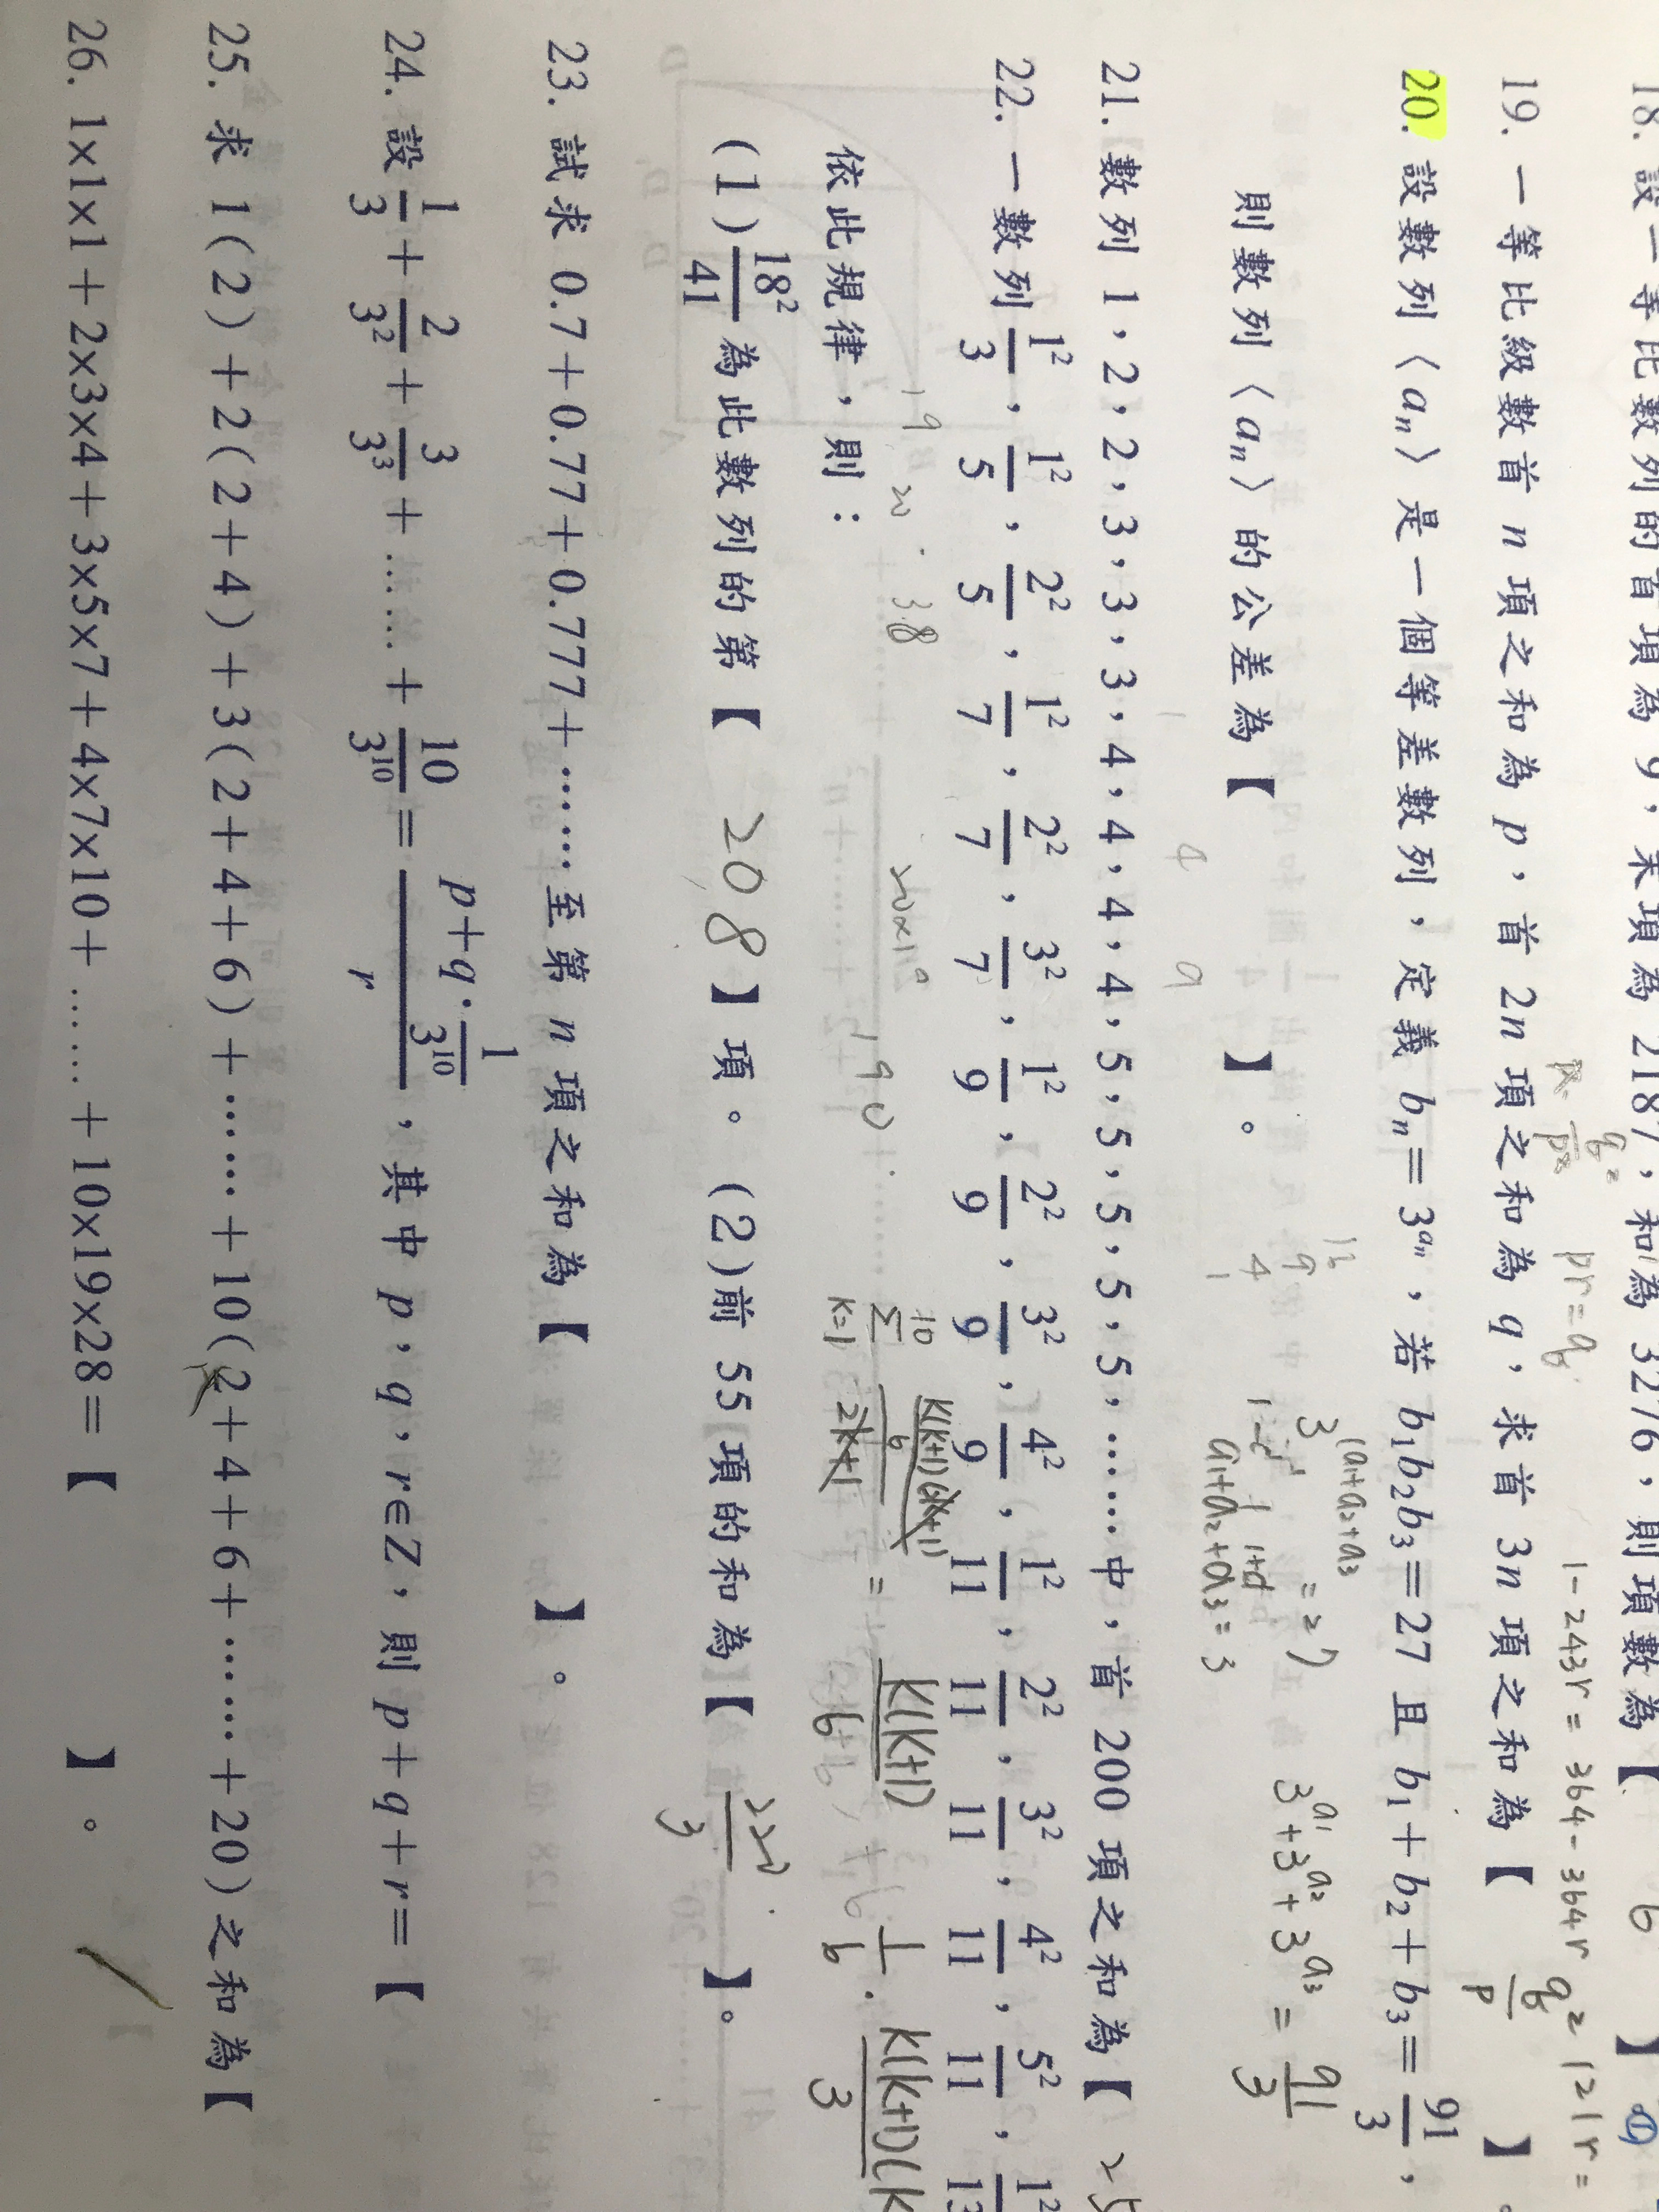 18. 設一等比數列的首項為 9，末項為 2187，和為 3276，則項數為【 6 】
1-243r = 364-364r
121r =
19. 一等比級數首 n 項之和為 p，首 2n 項之和為 q，求首 3n 項之和為【 】。
pr=q
20. 設數列〈aₙ〉是一個等差數列，定義 bₙ=3^(aₙ)，若 b₁b₂b₃=27 且 b₁+b₂+b₃=91/3，
則數列〈aₙ〉的公差為【 】。
3^(a₁+a₂+a₃) = 27
a₁+a₂+a₃=3
3^(a₁)+3^(a₂)+3^(a₃) = 91/3
21. 數列 1，2，2，3，3，3，4，4，4，4，5，5，5，5，5，……中，首 200 項之和為【
22. 一數列 1²/3，1²/5，2²/5，1²/7，2²/7，3²/7，1²/9，2²/9，3²/9，4²/9，1²/11，2²/11，3²/11，4²/11，5²/11，1²/13
依此規律，則：
(1) 18²/41 為此數列的第【 208 】項。(2)前 55 項的和為【 220/3 】。
23. 試求 0.7+0.77+0.777+……至第 n 項之和為【 】。
24. 設 1/3+2/3²+3/3³+……+10/3¹⁰=(p+q·1/3¹⁰)/r，其中 p，q，r∈Z，則 p+q+r=【
25. 求 1(2)+2(2+4)+3(2+4+6)+……+10(2+4+6+……+20)之和為【
26. 1×1×1+2×3×4+3×5×7+4×7×10+……+10×19×28=【 】。